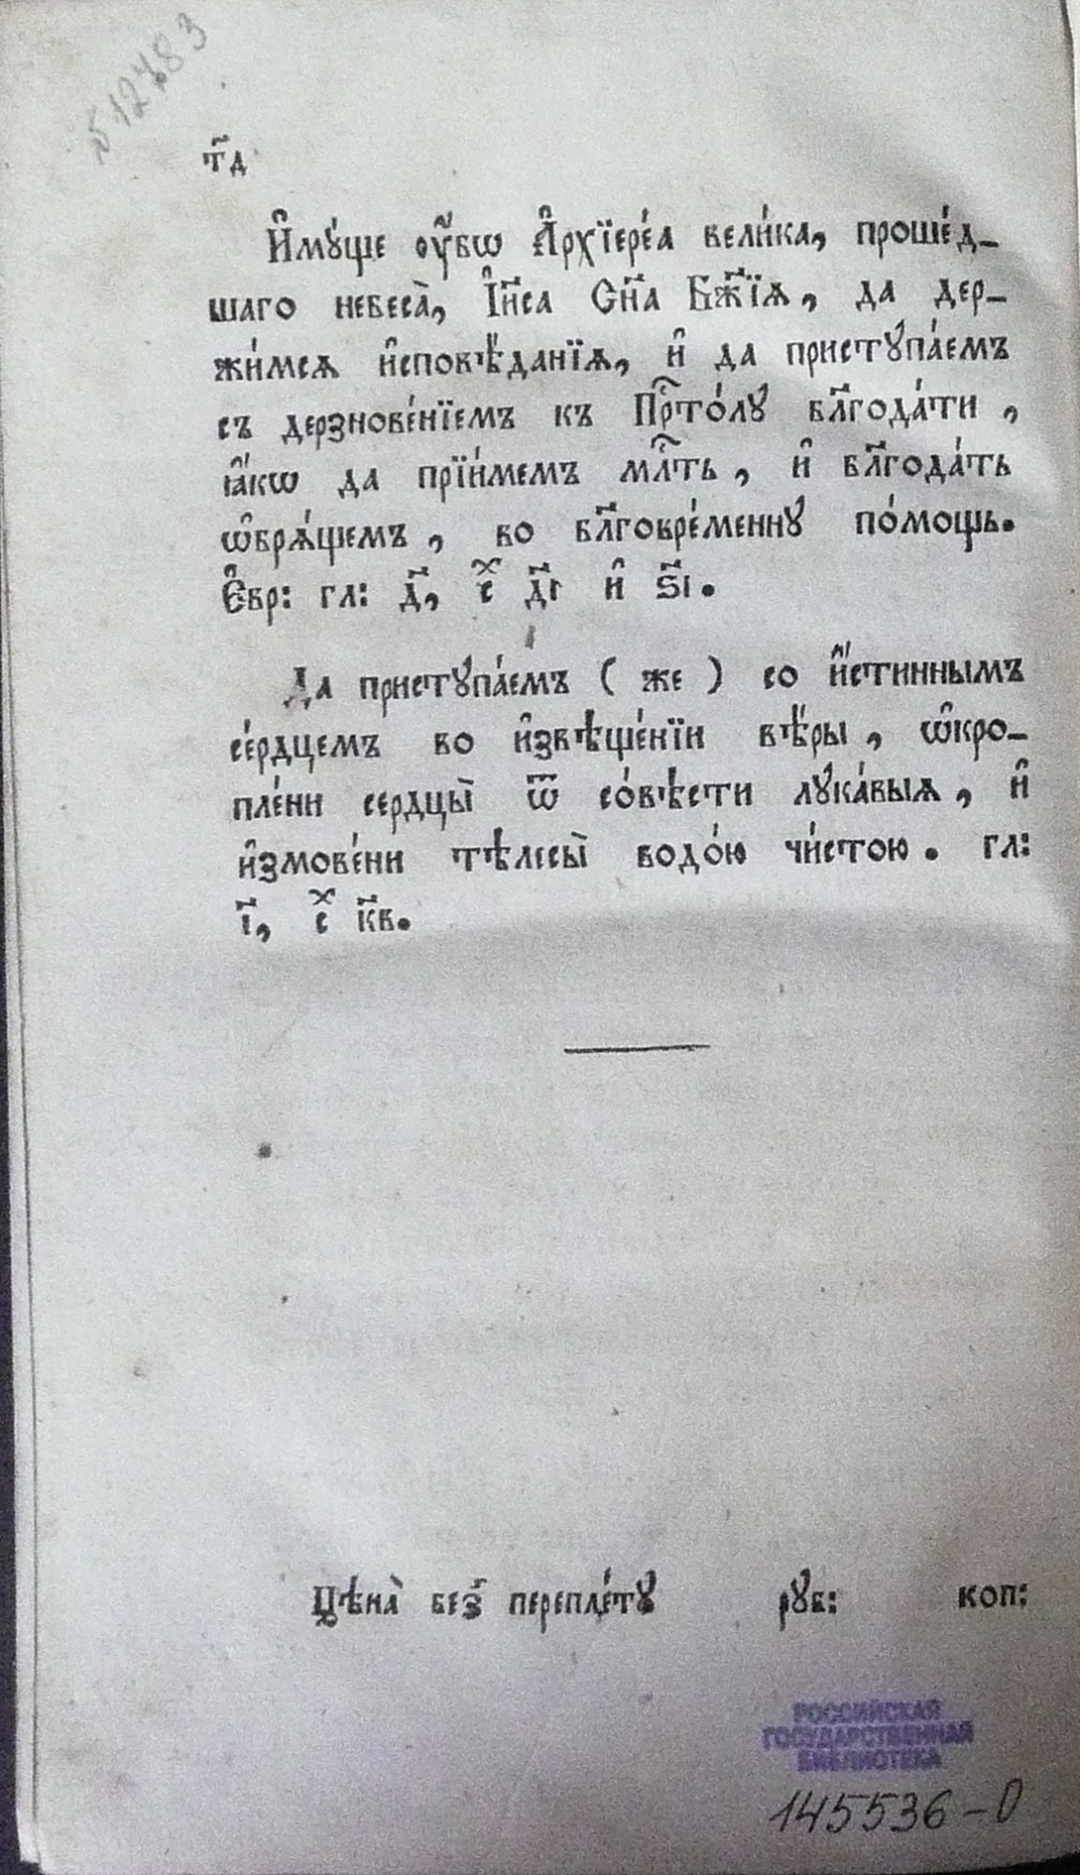 512783
т҃д
И҆мꙋ́ще ᲂу҆́бѡ А҆рхїере́а вели́ка, проше́д-
шаго небеса̀, І҆и҃са Сн҃а Бж҃їѧ, да дер-
жи́мсѧ и҆сповѣ́данїѧ, и҆ да пристꙋпа́емъ
съ дерзнове́нїемъ къ Прⷭ҇то́лꙋ бл҃года́ти,
ꙗ҆́кѡ да прїи́мемъ млⷭ҇ть, и҆ бл҃года́ть
ѡ҆брѧ́щемъ, во бл҃говре́меннꙋ по́мощь.
Є҆вр: гл: д҃, сⷯ д҃і и҆ ѕ҃і.
Да пристꙋпа́емъ ( же ) со и҆́стиннымъ
се́рдцемъ во и҆звѣще́нїи вѣ́ры, ѡ҆кро-
пле́ни сердцы̀ ѿ со́вѣсти лꙋка́выѧ, и҆
и҆змове́ни тѣлесы̀ водо́ю чи́стою. гл:
і҃, сⷯ к҃в.
Цѣна̀ без̾ перепле́тꙋ рꙋб: коп:
РОССИЙСКАЯ
ГОСУДАРСТВЕННАЯ
БИБЛИОТЕКА
145536-0